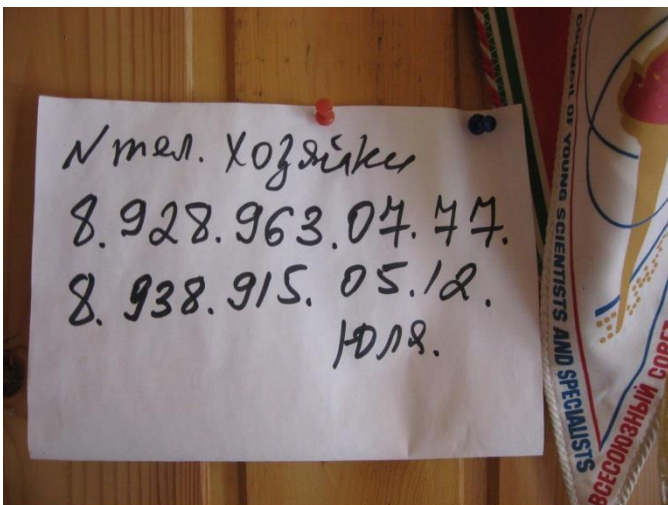 N тел. Хозяйки
8.928.963.07.77.
8.938.915.05.12.
Юля.
COUNCIL OF YOUNG SCIENTISTS AND SPECIALISTS
ВСЕСОЮЗНЫЙ СОВЕТ